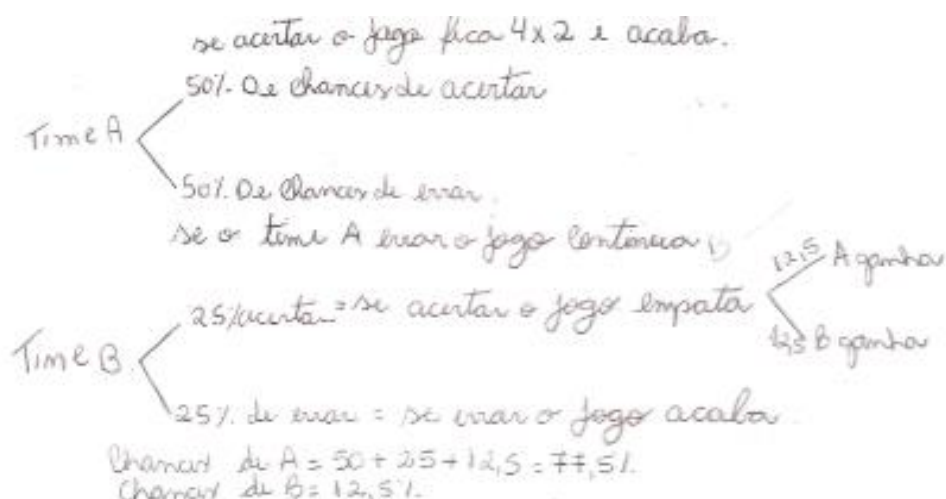 se acertar o jogo fica 4x2 e acaba.
50%. De chances de acertar
Time A
50%. De chances de errar.
se o time A errar o jogo continua
12,5 A ganha
25% acertar = se acertar o jogo empata
12,5 B ganha
Time B
25%. de errar = se errar o jogo acaba.
Chances de A = 50 + 25 + 12,5 = 77,5%.
Chances de B = 12,5%.